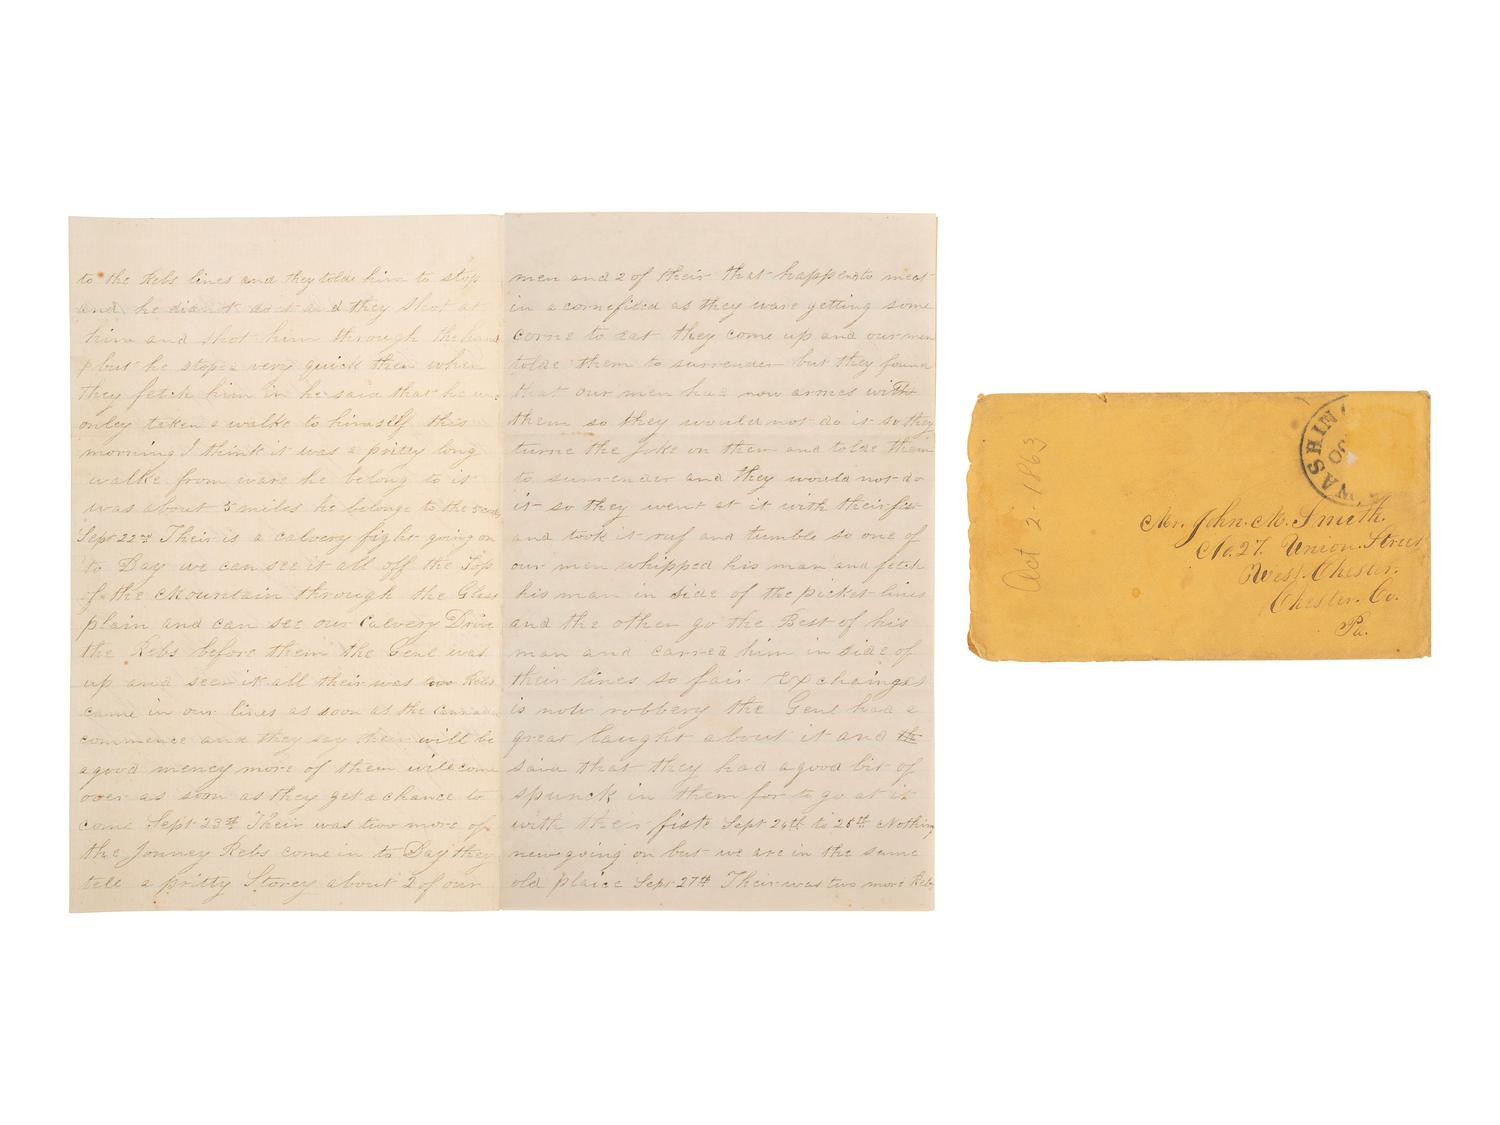 to the Rebs lines and they tolde him to stop
and he didn't do it and they shot at
him and shot him through the hand
but he stoped very quick then when
they fetch him in he said that he was
onley taken a walke to himself this
morning I think it was a pritty long
walke from ware he belong to it
was about 5 miles he belonge to the 5 corps
Sept 22nd Their is a calvery fight going on
to Day we can see it all off the Top
of the Mountain through the Glass
plain and can see our Calvery Drive
the Rebs before them the Genl was
up and seen it all their was two Rebs
came in our lines as soon as the
commence and they say their will be
a good meney more of them will come
over as soon as they get a chance to
come Sept 23rd Their was two more of
the Jonney Rebs come in to Day they
tell a pritty Storey about 2 of our
men and 2 of their that happen to meat
in a cornefiled as they ware getting some
corne to eat they come up and our men
tolde them to surrender but they found
that our men had now armes with
them so they would not do it so they
turne the joke on them and tolde them
to surrender and they would not do
it so they went at it with their fist
and took it ruf and tumble so one of
our men whipped his man and fetch
his man in side of the picket lines
and the other go the Best of his
man and carred him in side of
their lines so fair Exchainges
is now robbery the Genl had a
great laught about it and the
said that they had a good bit of
spunck in them for to go at it
with their fists Sept 24th to 26th Nothing
new going on but we are in the same
old plaice Sept 27th Their was two more Rebs
WASHIN
OC
Oct 2 - 1863
Mr. John. M. Smith.
No. 27. Union. Street
West. Chester.
Chester. Co.
Pa.